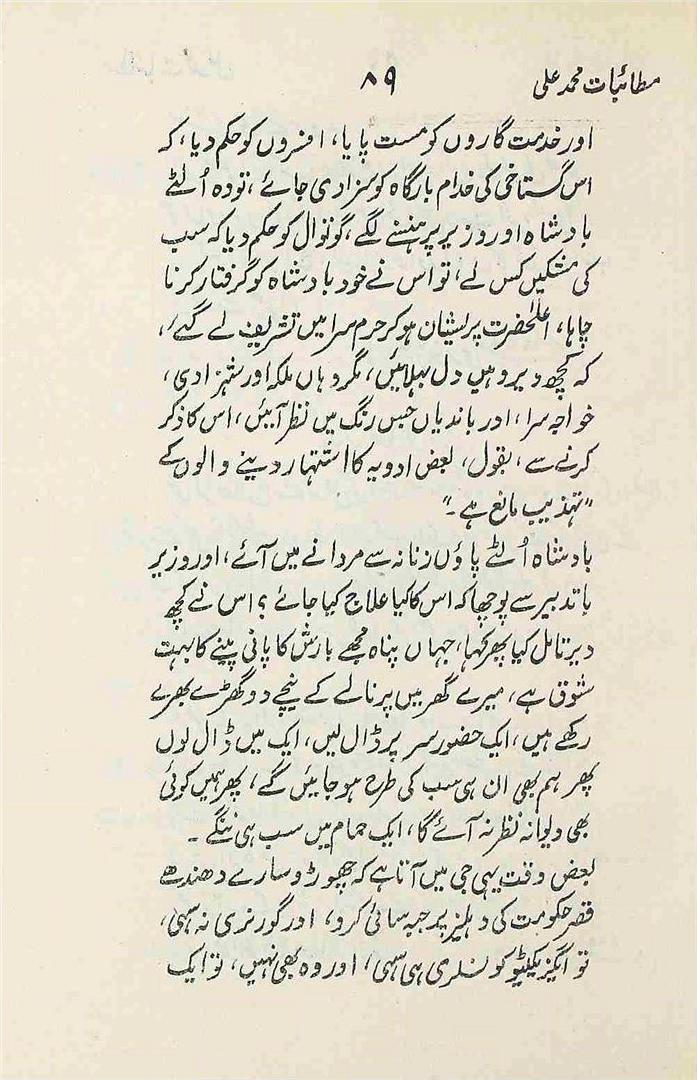 مطائبات محمد علی
۸۹
اور خدمت گاروں کو مست پایا، افسروں کو حکم دیا، کہ
اس گستاخی کی خدام بارگاہ کو سزا دی جائے، تو وہ اُلٹے
بادشاہ اور وزیر پر ہنسنے لگے، کوتوال کو حکم دیا کہ سب
کی مشکیں کس لے، تو اس نے خود بادشاہ کو گرفتار کرنا
چاہا، اعلٰحضرت پریشان ہو کر حرم سرا میں تشریف لے گئے،
کہ کچھ دیر وہیں دل بہلائیں، مگر وہاں ملکہ اور شہزادی،
خواجہ سرا، اور باندیاں جس رنگ میں نظر آئیں، اس کا ذکر
کرنے سے، بقول، بعض ادویہ کا اشتہار دینے والوں کے
"تہذیب مانع ہے۔"
بادشاہ اُلٹے پاؤں زنانہ سے مردانے میں آئے، اور وزیر
باتدبیر سے پوچھا کہ اس کا کیا علاج کیا جائے؟ اس نے کچھ
دیر تامل کیا پھر کہا، جہاں پناہ مجھے بارش کا پانی پینے کا بہت
شوق ہے، میرے گھر میں پرنالے کے نیچے دو گھڑے بھرے
رکھے ہیں، ایک حضور سر پر ڈال لیں، ایک میں ڈال لوں
پھر ہم بھی ان ہی سب کی طرح ہو جائیں گے، پھر ہمیں کوئی
بھی دیوانہ نظر نہ آئے گا، ایک حمام میں سب ہی ننگے۔
بعض وقت یہی جی میں آتا ہے کہ چھوڑو سارے دھندے
قصر حکومت کی دہلیز پر جبہ سائی کرو، اور گورنری نہ سہی،
تو اگزیکیٹیو کونسلری ہی سہی، اور وہ بھی نہیں، تو ایک